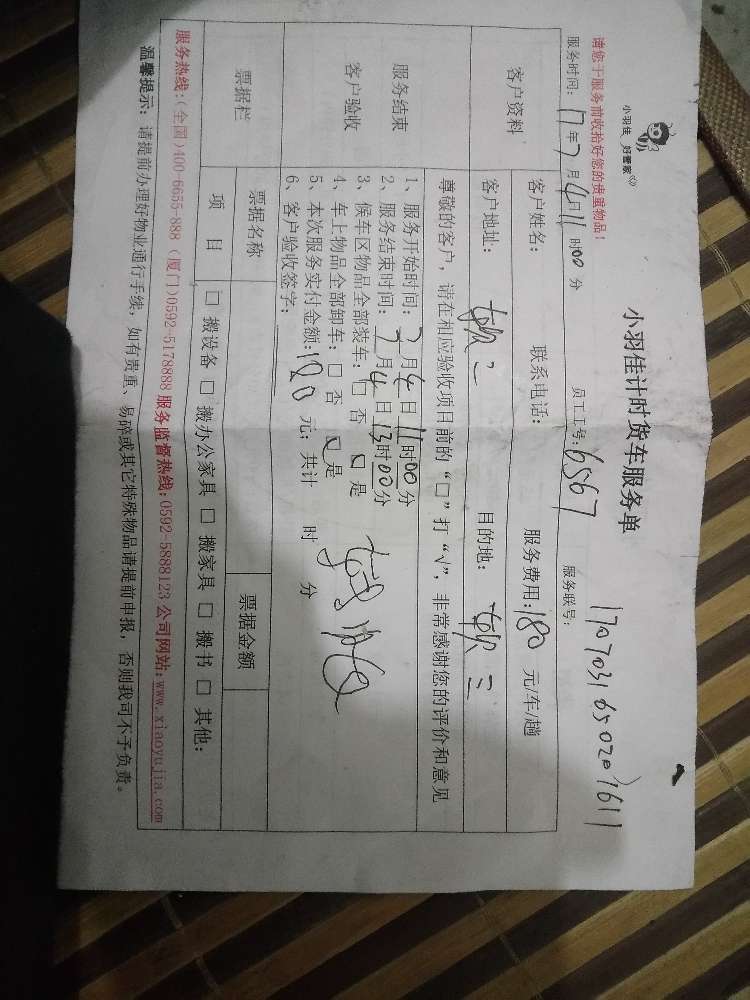 小羽佳 好管家
小羽佳计时货车服务单
请您于服务前收拾好您的贵重物品！
服务联号：
17070316502071611
服务时间：17年7月4日11时00分 员工工号：6567
客户资料
客户姓名： 联系电话： 服务费用：180元/车/趟
客户地址： 目的地：
服务结束
客户验收
尊敬的客户，请在相应验收项目前的“□”打“√”，非常感谢您的评价和意见
1、服务开始时间：7月4日11时00分
2、服务结束时间：7月4日13时00分
3、候车区物品全部装车：□否 □是
4、车上物品全部卸车：□否 □是
5、本次服务实付金额：180元；共计 时 分
6、客户验收签字：
票据栏
票据名称 票据金额
项目 □搬设备 □搬办公家具 □搬家具 □搬书 □其他：
服务热线：(全国)400-6655-888 (厦门)0592-5178888 服务监督热线：0592-5888123 公司网站：www.xiaoyujia.com
温馨提示：请提前办理好物业通行手续，如有贵重、易碎或其它特殊物品请提前申报，否则我司不予负责。